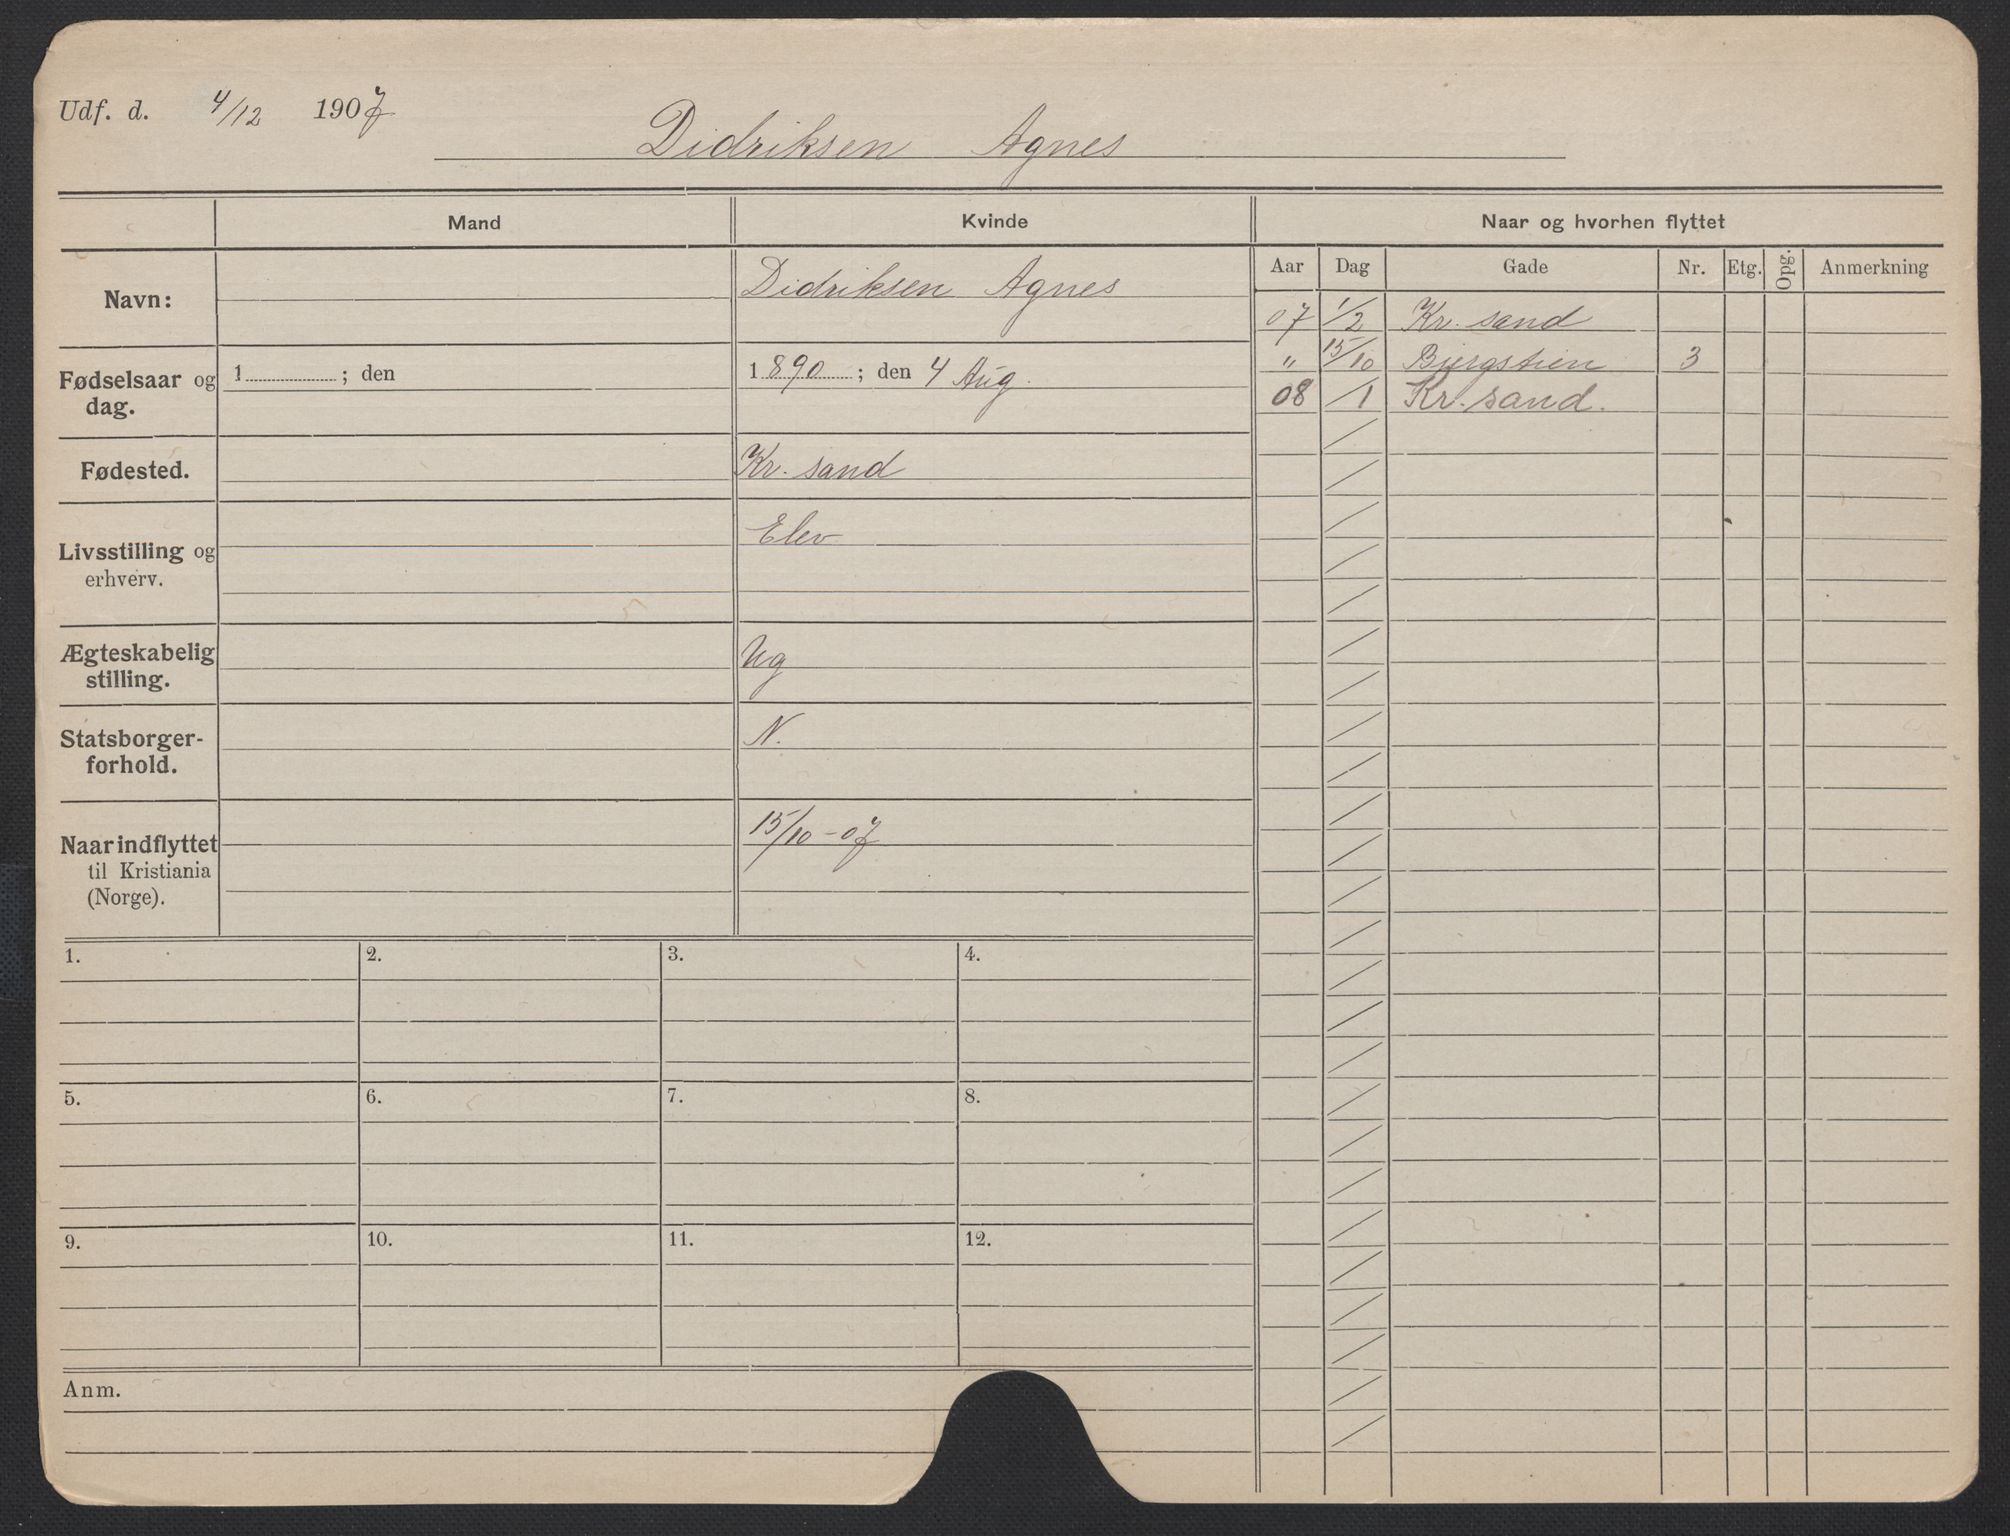 Udf. d. 4/12 1907
Didriksen Agnes
Mand
Kvinde
Naar og hvorhen flyttet
Aar Dag Gade Nr. Etg. Opg. Anmerkning
Navn:
Didriksen Agnes
Fødselsaar og
dag.
1 ; den
1890 ; den 4 Aug.
Fødested.
Kr. sand
Livsstilling og
erhverv.
Elev
Ægteskabelig
stilling.
Ug
Statsborger-
forhold.
N.
Naar indflyttet
til Kristiania
(Norge).
15/10-07
07 1/2 Kr. sand
" 15/10 Bjergstien 3
08 /1 Kr. sand.
1. 2. 3. 4.
5. 6. 7. 8.
9. 10. 11. 12.
Anm.